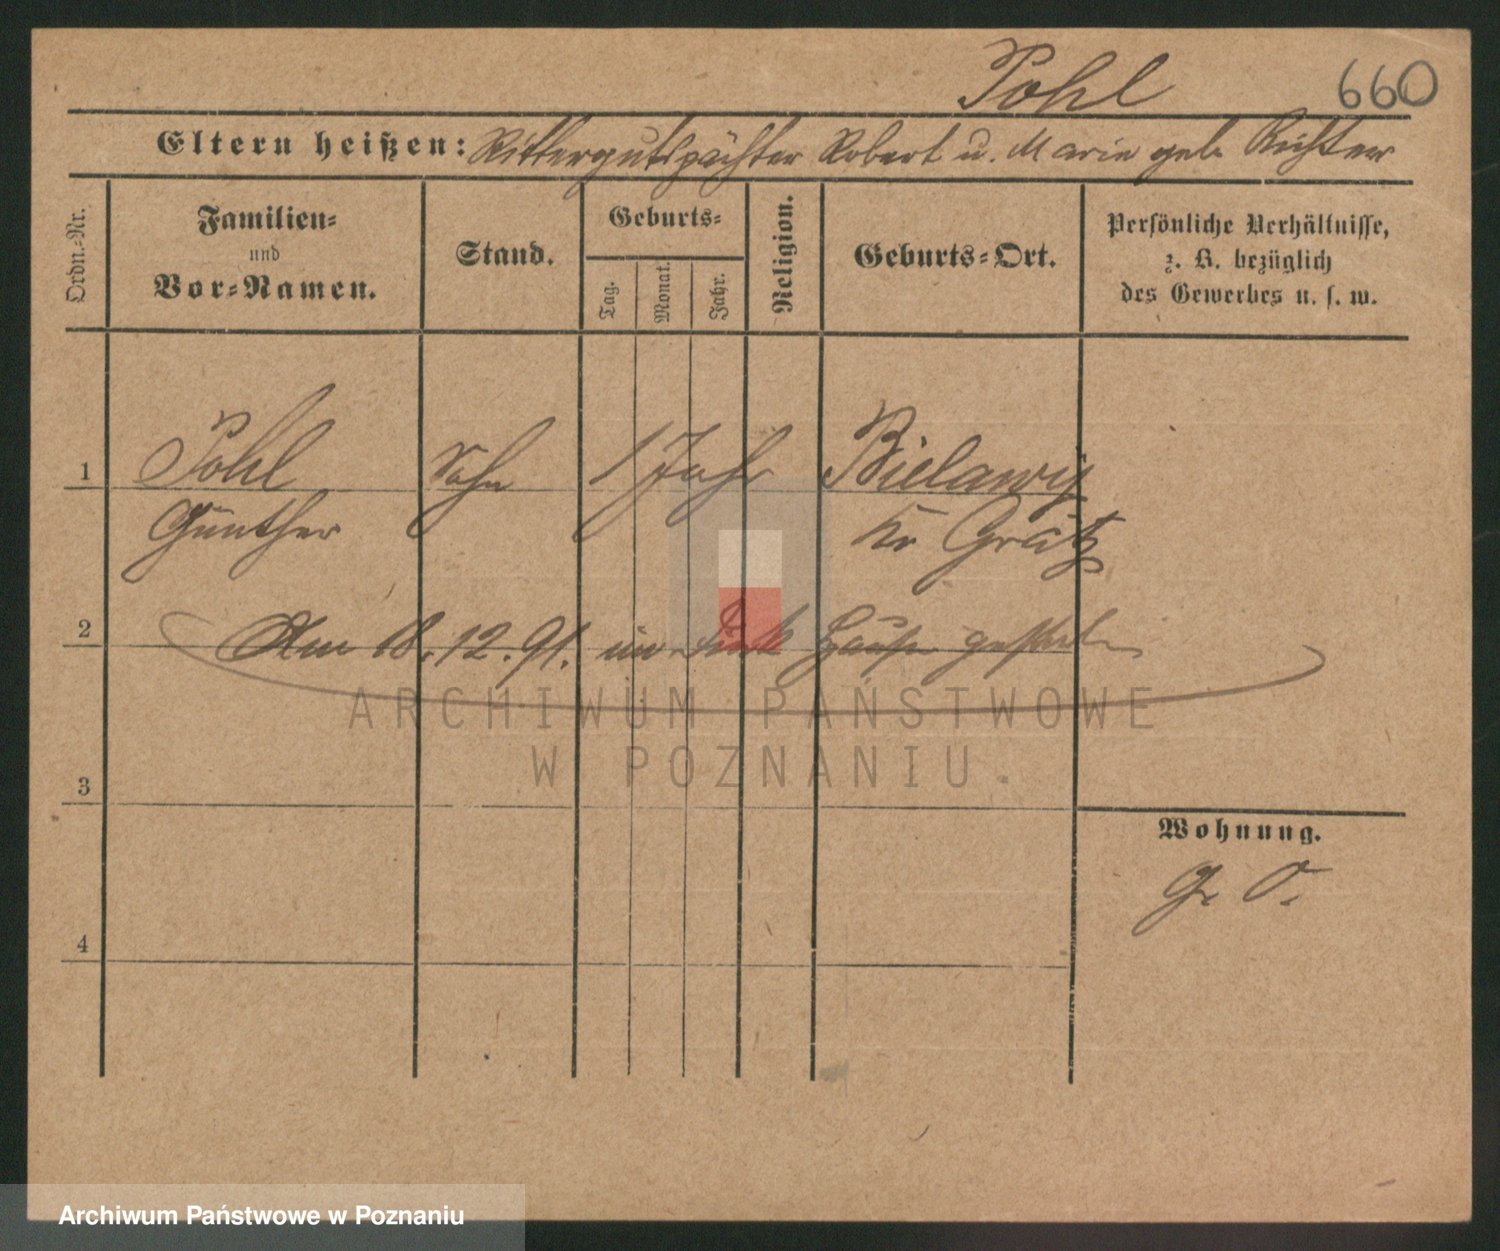 Pohl 660
Eltern heißen: Rittergutspächter Robert u. Marie geb. Richter
Ordn.-Nr.
Familien-
und
Vor-Namen.
Stand.
Geburts-
Tag.
Monat.
Jahr.
Religion.
Geburts-Ort.
Persönliche Verhältnisse,
z. B. bezüglich
des Gewerbes u. s. w.
1 Pohl Sohn 1 Jahr Bielawy
Günther Kr Grätz
2 Am 18.12.91. im Hause
3
Wohnung.
G. O.
4
ARCHIWUM PAŃSTWOWE
W POZNANIU.
Archiwum Państwowe w Poznaniu